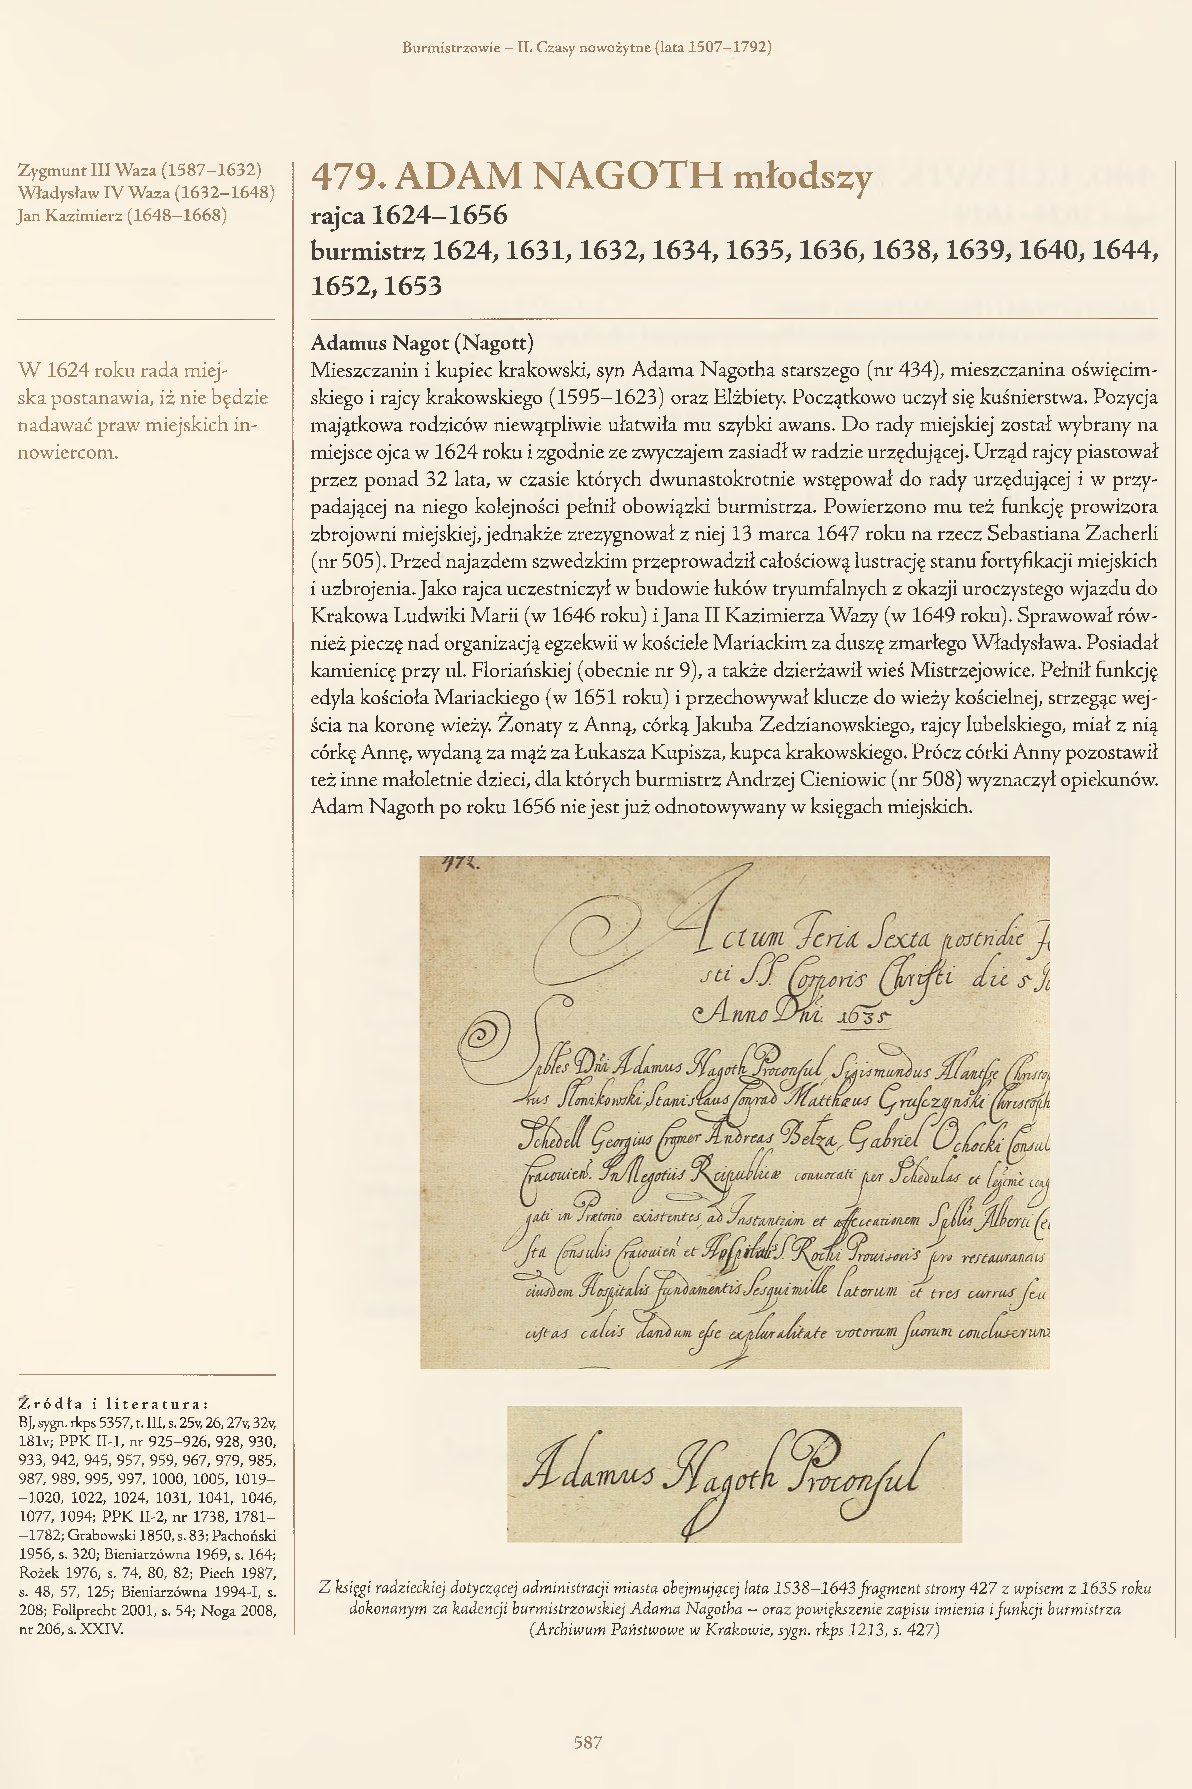 Burmistrzowie – II. Czasy nowożytne (lata 1507–1792)
Zygmunt III Waza (1587–1632)
Władysław IV Waza (1632–1648)
Jan Kazimierz (1648–1668)
W 1624 roku rada miej-
ska postanawia, iż nie będzie
nadawać praw miejskich in-
nowiercom.
479. ADAM NAGOTH młodszy
rajca 1624–1656
burmistrz 1624, 1631, 1632, 1634, 1635, 1636, 1638, 1639, 1640, 1644,
1652, 1653
Adamus Nagot (Nagott)
Mieszczanin i kupiec krakowski, syn Adama Nagotha starszego (nr 434), mieszczanina oświęcim-
skiego i rajcy krakowskiego (1595–1623) oraz Elżbiety. Początkowo uczył się kuśnierstwa. Pozycja
majątkowa rodziców niewątpliwie ułatwiła mu szybki awans. Do rady miejskiej został wybrany na
miejsce ojca w 1624 roku i zgodnie ze zwyczajem zasiadł w radzie urzędującej. Urząd rajcy piastował
przez ponad 32 lata, w czasie których dwunastokrotnie wstępował do rady urzędującej i w przy-
padającej na niego kolejności pełnił obowiązki burmistrza. Powierzono mu też funkcję prowizora
zbrojowni miejskiej, jednakże zrezygnował z niej 13 marca 1647 roku na rzecz Sebastiana Zacherli
(nr 505). Przed najazdem szwedzkim przeprowadził całościową lustrację stanu fortyfikacji miejskich
i uzbrojenia. Jako rajca uczestniczył w budowie łuków tryumfalnych z okazji uroczystego wjazdu do
Krakowa Ludwiki Marii (w 1646 roku) i Jana II Kazimierza Wazy (w 1649 roku). Sprawował rów-
nież pieczę nad organizacją egzekwii w kościele Mariackim za duszę zmarłego Władysława. Posiadał
kamienicę przy ul. Floriańskiej (obecnie nr 9), a także dzierżawił wieś Mistrzejowice. Pełnił funkcję
edyla kościoła Mariackiego (w 1651 roku) i przechowywał klucze do wieży kościelnej, strzegąc wej-
ścia na koronę wieży. Żonaty z Anną, córką Jakuba Zedzianowskiego, rajcy lubelskiego, miał z nią
córkę Annę, wydaną za mąż za Łukasza Kupisza, kupca krakowskiego. Prócz córki Anny pozostawił
też inne małoletnie dzieci, dla których burmistrz Andrzej Cieniowic (nr 508) wyznaczył opiekunów.
Adam Nagoth po roku 1656 nie jest już odnotowywany w księgach miejskich.
Actum Feria Sexta postridie
sti SS. Corporis Christi die 5
Anno Dni. 1635
Spbles Dni Adamus Nagoth Proconsul, Sigismundus Alantse
Słonikowski Stanislaus Conrad Matthæus Grusczynski
Schedell Georgius Cromer Andreas Belza, Gabriel Ochocki
In Negotiis Reipublicæ convocati per Schedulas et
gati in Prætorio existentes, ad Instantiam et affectationem Spblis Alberti
sta Consulis Cracovien et Hospitalis S. Rochi Provisoris pro restaurandis
eiusdem Hospitalis fundamentis Sesquimille laterum et tres currus seu
cistas calcis dandum esse ex pluralitate votorum suorum concluserunt
Adamus Nagoth Proconsul
Z księgi radzieckiej dotyczącej administracji miasta obejmującej lata 1538–1643 fragment strony 427 z wpisem z 1635 roku
dokonanym za kadencji burmistrzowskiej Adama Nagotha – oraz powiększenie zapisu imienia i funkcji burmistrza
(Archiwum Państwowe w Krakowie, sygn. rkps 1213, s. 427)
Źródła i literatura:
BJ, sygn. rkps 5357, t. III, s. 25v, 26, 27v, 32v,
181v; PPK II-1, nr 925–926, 928, 930,
933, 942, 945, 957, 959, 967, 979, 985,
987, 989, 995, 997, 1000, 1005, 1019–
–1020, 1022, 1024, 1031, 1041, 1046,
1077, 1094; PPK II-2, nr 1738, 1781–
–1782; Grabowski 1850, s. 83; Pachoński
1956, s. 320; Bieniarzówna 1969, s. 164;
Rożek 1976, s. 74, 80, 82; Piech 1987,
s. 48, 57, 125; Bieniarzówna 1994-I, s.
208; Follprecht 2001, s. 54; Noga 2008,
nr 206, s. XXIV.
587